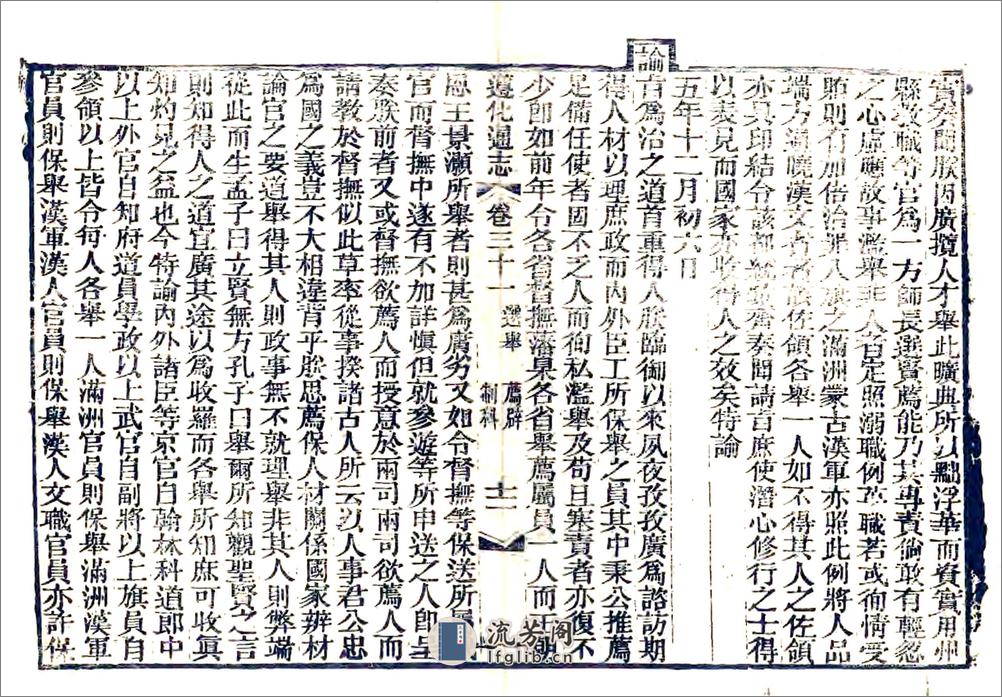 實奏聞朕因廣攬人才舉此曠典所以黜浮華而資實用州
縣教職等官爲一方師長選賢薦能乃其專責倘敢有輕忽
之心虛應故事濫舉非人者定照溺職例革職若或徇情受
賄則有加倍治罪人員之滿洲蒙古漢軍亦照此例將人品
端方通曉漢文者各該佐領各舉一人如不得其人之佐領
亦具印結令該都統啟齊奏聞請旨庶使潛心修行之士得
以表見而國家亦收得人之效矣特諭
五年十二月初六日
諭
旨爲治之道首重得人朕臨御以來夙夜孜孜廣爲諮訪期
得人材以理庶政而內外臣工所保舉之員其中秉公推薦
足備任使者固不乏人而徇私濫舉及苟且塞責者亦復不
少卽如前年令各省督撫藩臬各省舉薦屬員一人而杜朝
遵化通志 卷三十一 選舉 薦辟 制科 十二
恩王景灝所舉者則甚爲庸劣又如令督撫等保送所屬
官而督撫中遂有不加詳愼但就參遊等所申送之人卽呈
奏朕前者又或督撫欲薦人而授意於兩司兩司欲薦人而
請教於督撫似此草率從事揆諸古人所云以人事君公忠
爲國之義豈不大相違背乎朕思薦保人材關係國家辨材
論官之要道舉得其人則政事無不就理舉非其人則弊端
從此而生孟子曰立賢無方孔子曰舉爾所知觀聖賢之言
則知得人之道宜廣其途以爲收羅而各舉所知庶可收眞
知灼見之益也今特諭內外諸臣等京官自翰林科道郎中
以上外官自知府道員學政以上武官自副將以上旗員自
參領以上皆令每人各舉一人滿洲官員則保舉滿洲漢軍
官員則保舉漢軍漢人官員則保舉漢人文職官員亦許保
流芳閣
lfglib.cn